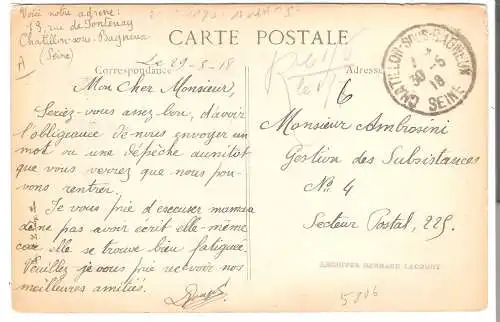 Voici notre adresse:
79, rue de Fontenay
Chatillon-sous-Bagneux
(Seine)
CARTE POSTALE
Correspondance
Adresse
Le 29-5-18
Mon Cher Monsieur,
Seriez-vous assez bon, d'avoir
l'obligeance de nous envoyer un
mot ou une dépêche aussitôt
que vous verrez que nous pou-
vons rentrer.
Je vous prie d'escuser maman
de ne pas avoir écrit elle-même
car elle se trouve bien fatiguée.
Veuillez je vous prie recevoir nos
meilleures amitiés.
6
Monsieur Ambrosini
Gestion des Subsistances
No 4
Secteur Postal, 225.
CHATILLON-SOUS-BAGNEUX
30-5
18
SEINE
ARCHIVES BERNARD LACOURT
5806